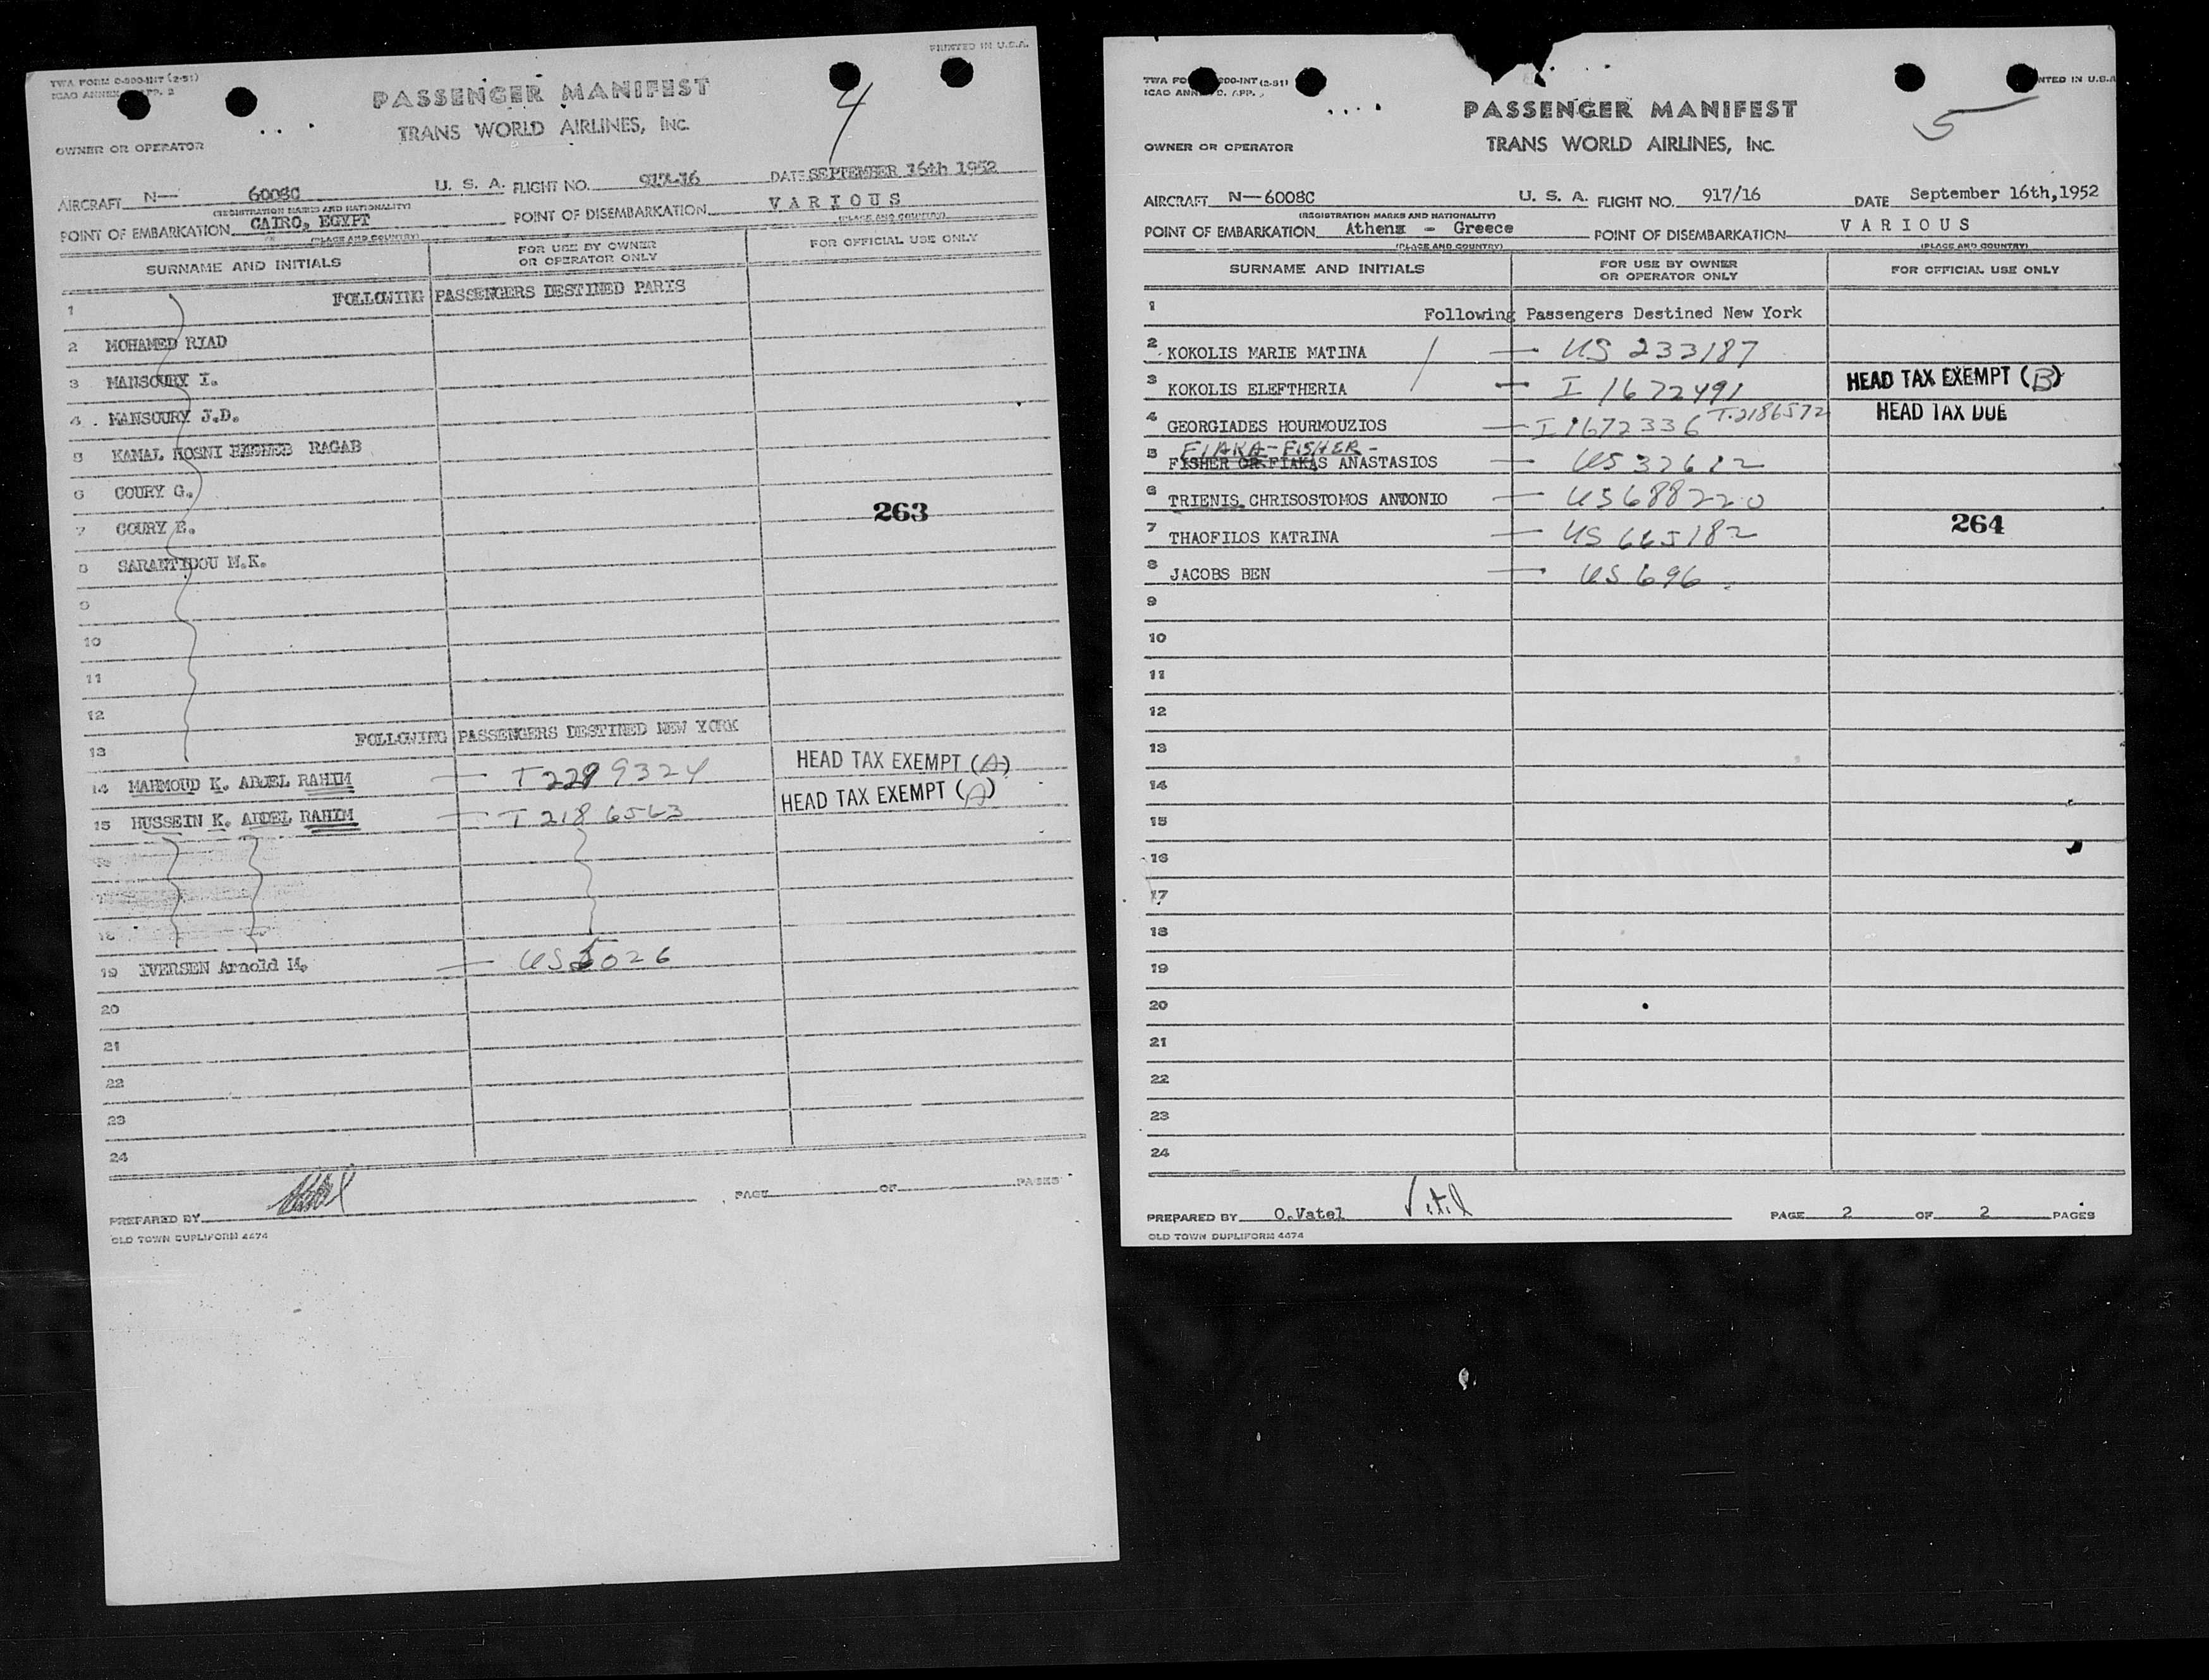 PRINTED IN U.S.A.
TWA FORM O-800-INT (2-51)
ICAO ANNEX APP. 2
4
PASSENGER MANIFEST
TRANS WORLD AIRLINES, INC.
OWNER OR OPERATOR
AIRCRAFT N— 6008C U. S. A. FLIGHT NO. DATE SEPTEMBER 16th 1952
(REGISTRATION MARKS AND NATIONALITY)
POINT OF EMBARKATION CAIRO, EGYPT POINT OF DISEMBARKATION VARIOUS
(PLACE AND COUNTRY) (PLACE AND COUNTRY)
SURNAME AND INITIALS FOR USE BY OWNER OR OPERATOR ONLY FOR OFFICIAL USE ONLY
1 FOLLOWING PASSENGERS DESTINED PARIS
2 MOHAMED RIAD
3 MANSOURY I.
4 MANSOURY J.D.
5 KAMAL HOSNI RAGAB
6 COURY G.
263
7 COURY E.
8 SARANTIDOU M.K.
9
10
11
12
13 FOLLOWING PASSENGERS DESTINED NEW YORK
14 MAHMOUD K. ABDEL RAHIM — T 2299324 HEAD TAX EXEMPT (A)
15 HUSSEIN K. ABDEL RAHIM — T 2186563 HEAD TAX EXEMPT (A)
16
17
18
19 IVERSEN Arnold M. — US 5026
20
21
22
23
24
PREPARED BY PAGE OF PAGES
OLD TOWN DUPLIFORM 4474
TWA FO 200-INT (2-51)
ICAO ANNE D. APP.
NTED IN U.S.A
5
PASSENGER MANIFEST
TRANS WORLD AIRLINES, INC.
OWNER OR OPERATOR
AIRCRAFT N—6008C U. S. A. FLIGHT NO. 917/16 DATE September 16th,1952
(REGISTRATION MARKS AND NATIONALITY)
POINT OF EMBARKATION Athens - Greece POINT OF DISEMBARKATION VARIOUS
(PLACE AND COUNTRY) (PLACE AND COUNTRY)
SURNAME AND INITIALS FOR USE BY OWNER OR OPERATOR ONLY FOR OFFICIAL USE ONLY
1 Following Passengers Destined New York
2 KOKOLIS MARIE MATINA / — US 233187
3 KOKOLIS ELEFTHERIA / — I 1672491 HEAD TAX EXEMPT (B)
4 GEORGIADES HOURMOUZIOS — I 1672336 T.2186572 HEAD TAX DUE
FIAKA-FISHER-
5 FISHER OR FIAKAS ANASTASIOS — US 37612
6 TRIENIS CHRISOSTOMOS ANTONIO — US 688220
7 THAOFILOS KATRINA — US 665182 264
8 JACOBS BEN — US 696
9
10
11
12
13
14
15
16
17
18
19
20
21
22
23
24
PREPARED BY O.Vatel Vatel PAGE 2 OF 2 PAGES
OLD TOWN DUPLIFORM 4474